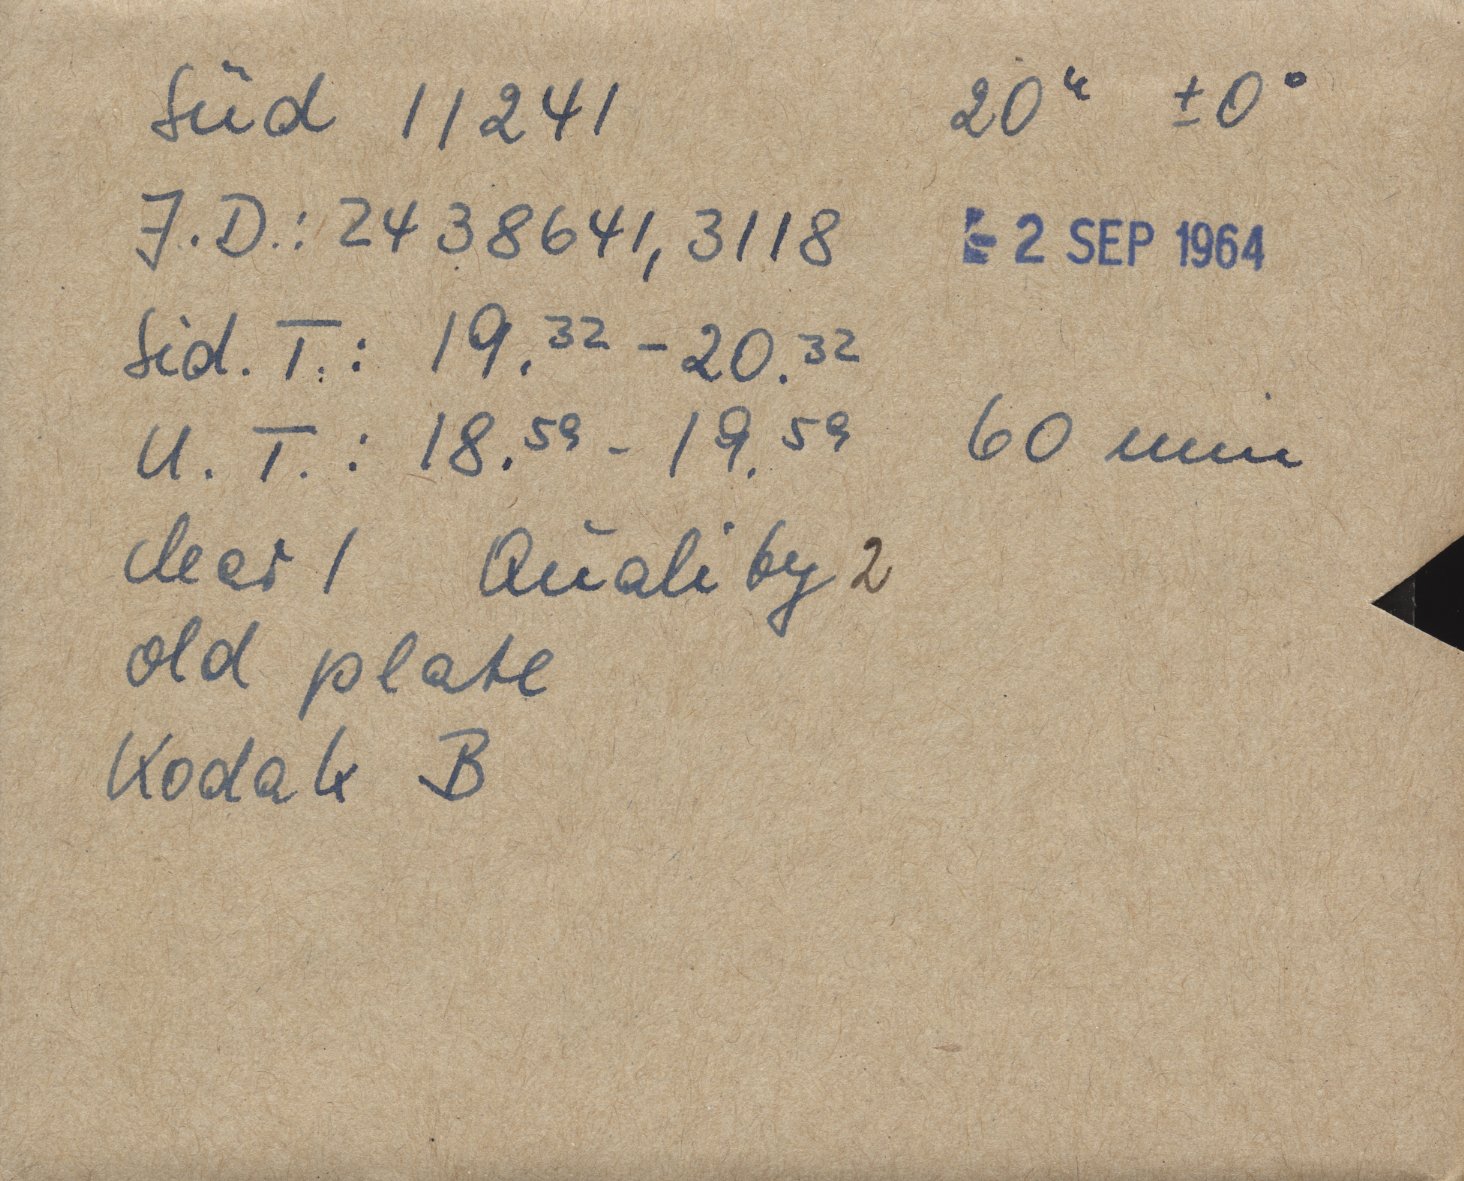 Süd 11241 20ʰ ±0°
J.D.: 2438641,3118 - 2 SEP 1964
Sid. T.: 19.³² - 20.³²
U. T.: 18.⁵⁹ - 19.⁵⁹ 60 min
clear 1 Quality 2
old plate
Kodak B